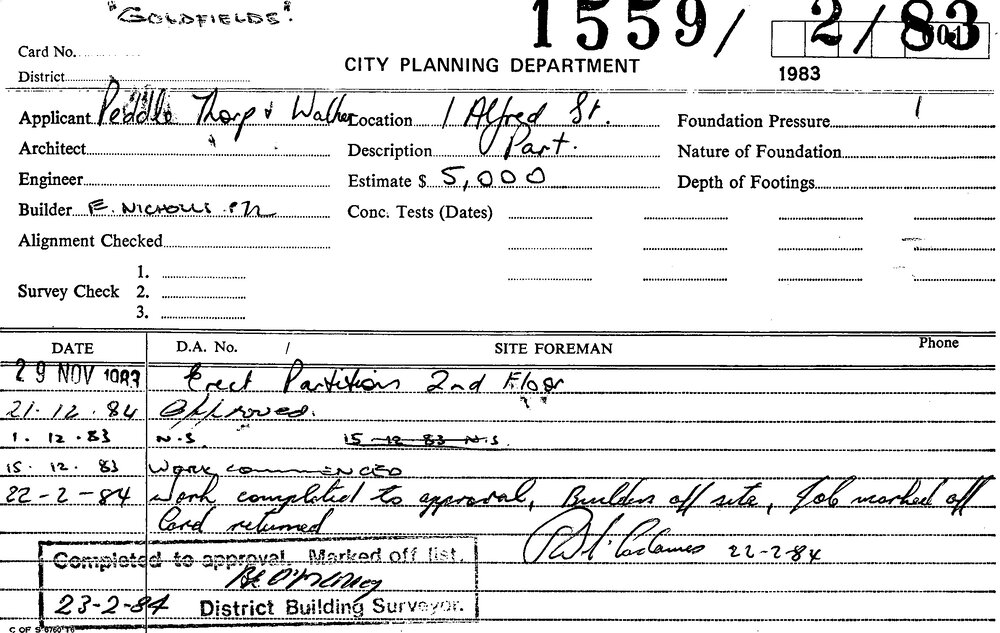 "GOLDFIELDS".
1559/ 2/83
Card No.
District
CITY PLANNING DEPARTMENT
1983
Applicant Peddle Thorp & Walker Location 1 Alfred St. Foundation Pressure
Architect Description Part. Nature of Foundation
Engineer Estimate $ 5,000 Depth of Footings
Builder E. NICHOLLS Conc. Tests (Dates)
Alignment Checked
1.
Survey Check 2.
3.
DATE D.A. No. / SITE FOREMAN Phone
29 NOV 1983 Erect Partitions 2nd Floor
21.12.84 Approved.
1.12.83 N.S. 15-12-83 N.S.
15.12.83 WORK COMMENCED
22-2-84 Work completed to approval, Builders off site, Job marked off
Card returned
22-2-84
Completed to approval. Marked off list.
23-2-84 District Building Surveyor.